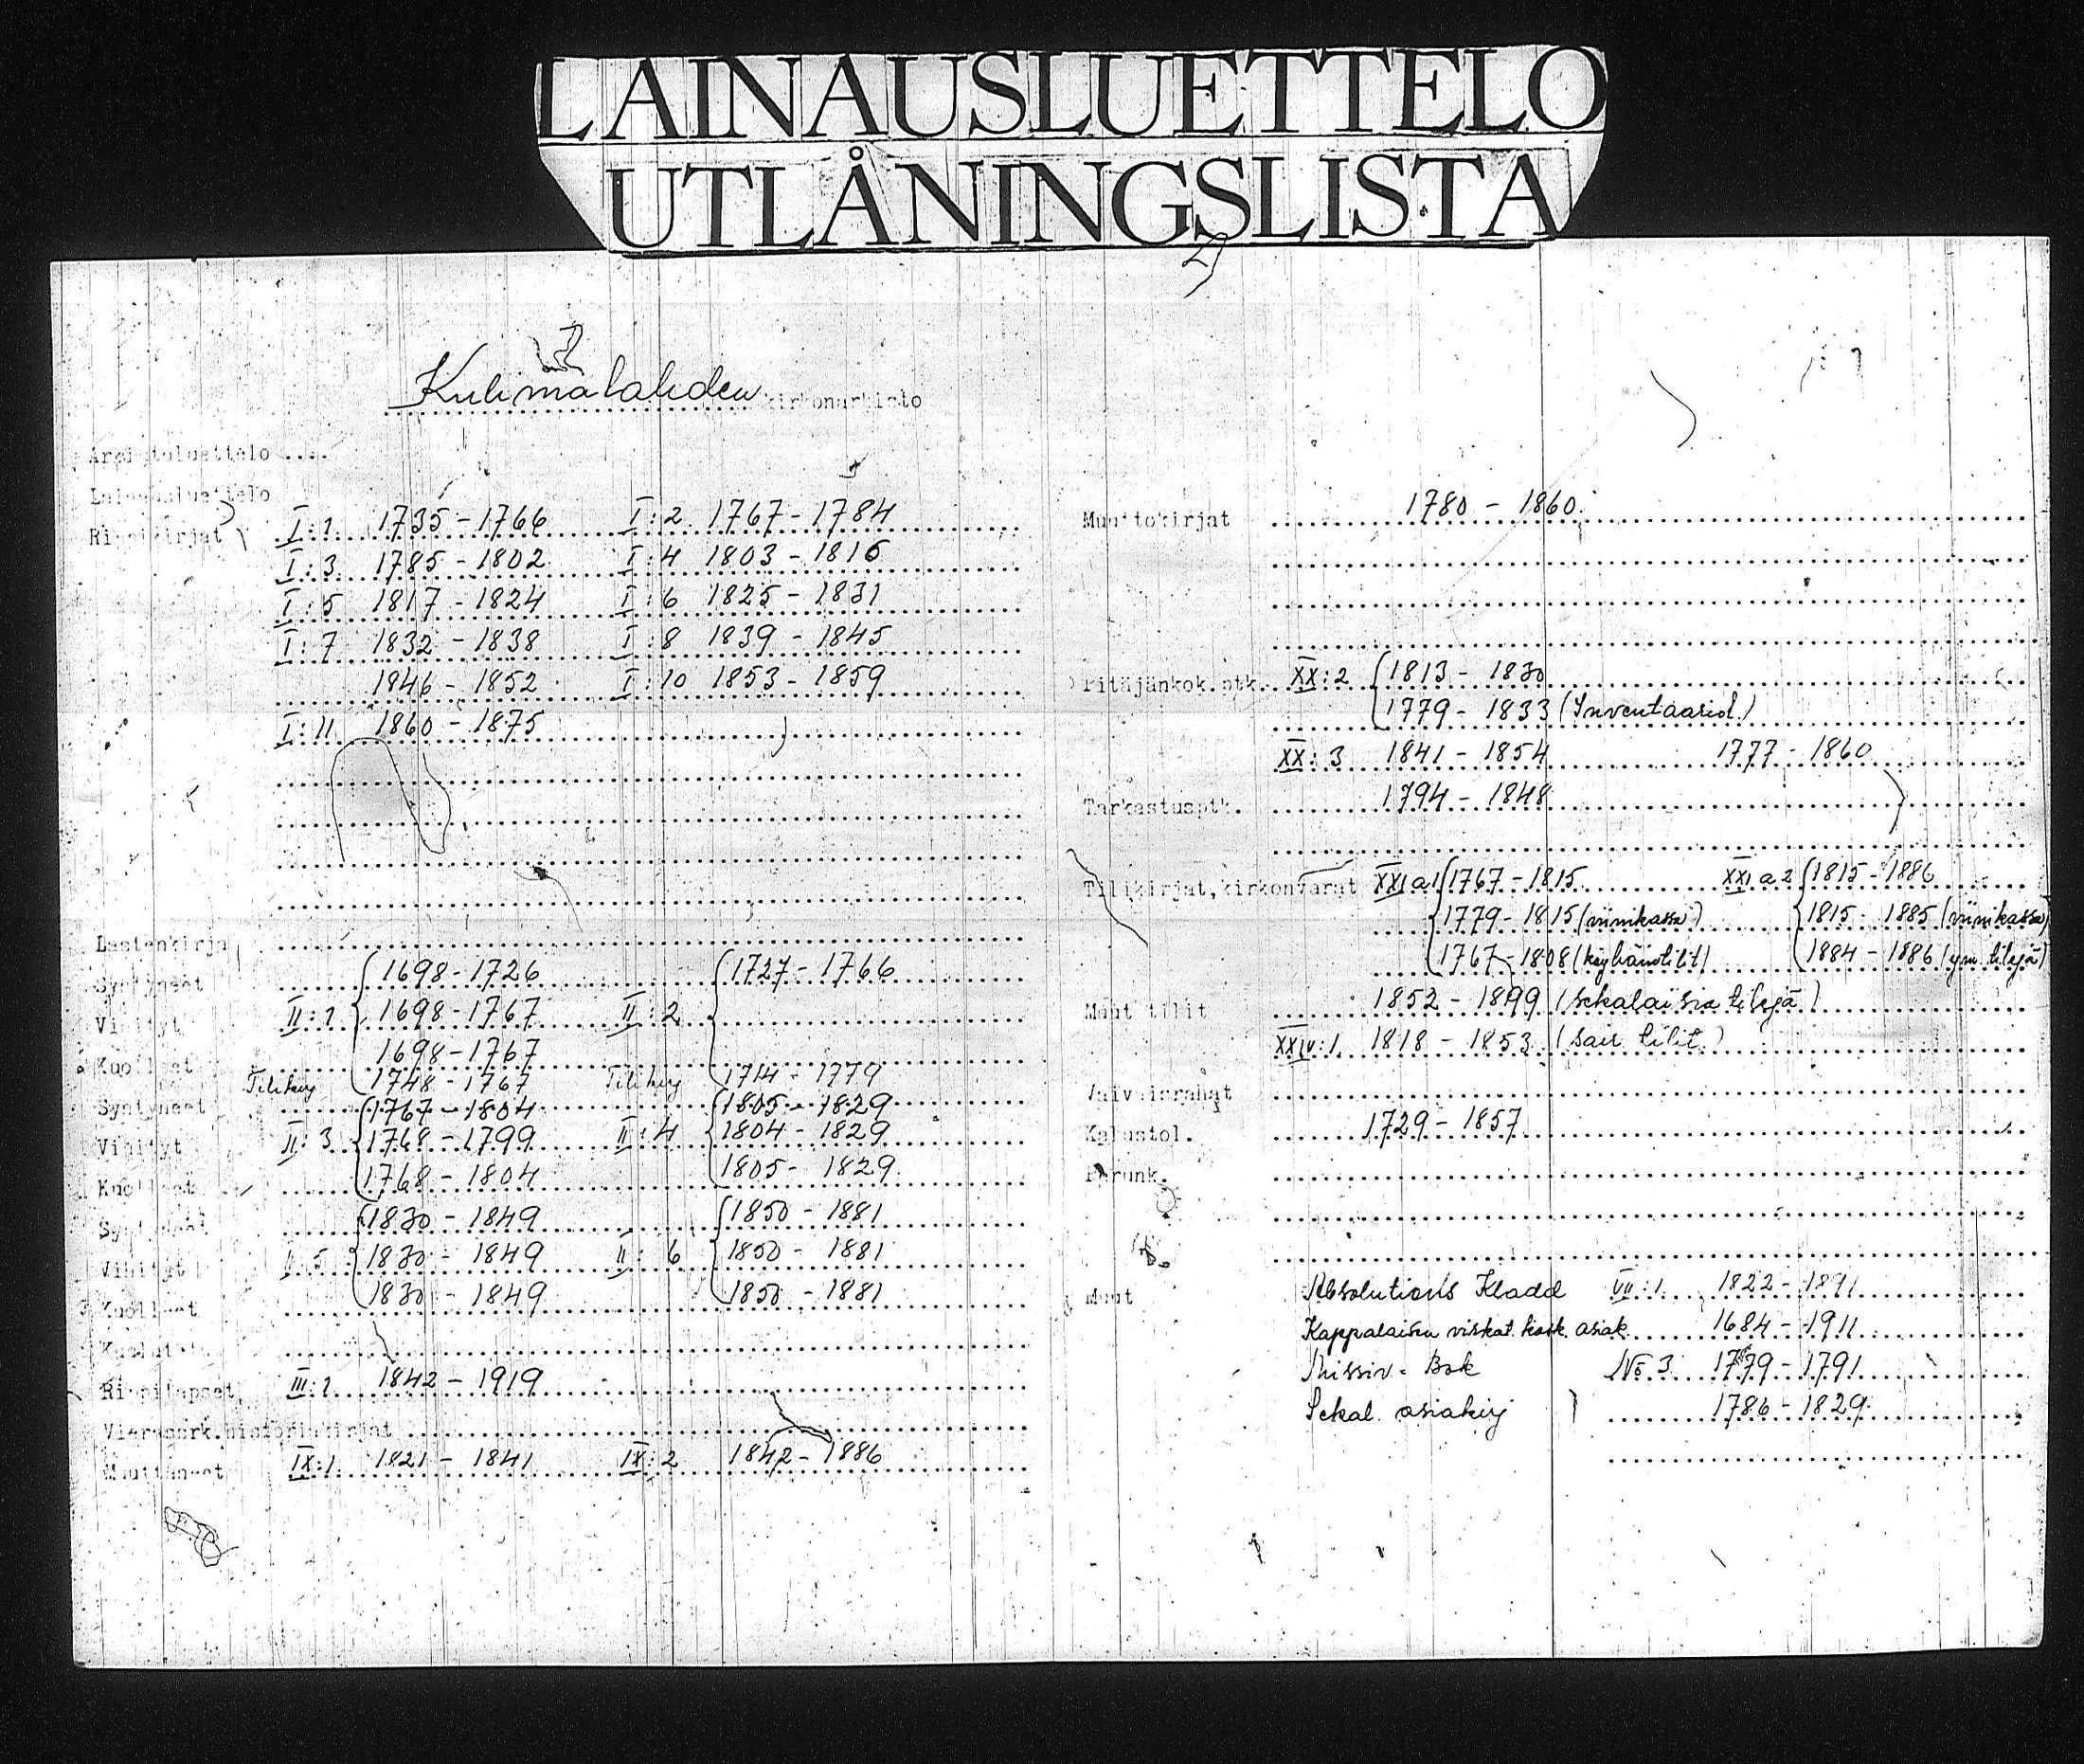 LAINAUSLUETTELO
UTLÅNINGSLISTA
Kulimalahden kirkonarkisto
Arkistoluettelo ....
Lainausluettelo
Rippikirjat I:1 1735-1766 I:2 1767-1784
I:3 1785-1802 I:4 1803-1816
I:5 1817-1824 I:6 1825-1831
I:7 1832-1838 I:8 1839-1845
1846-1852 I:10 1853-1859
I:11 1860-1875
Lastenkirja
Syntyneet 1698-1726 1727-1766
Vihityt II:1 1698-1767 II:2
Kuolleet 1698-1767
Tilikirj 1748-1767 Tilikirj 1714-1779
Syntyneet 1767-1804 1805-1829
Vihityt II:3 1768-1799 II:4 1804-1829
Kuolleet 1768-1804 1805-1829
Syntyneet 1830-1849 1850-1881
Vihityt II:5 1830-1849 II:6 1850-1881
Kuolleet 1830-1849 1850-1881
Rippilapset III:1 1842-1919
Vierasserk.historiakirjat
Muuttaneet IX:1 1821-1841 IX:2 1842-1886
Muuttokirjat 1780-1860
Pitäjänkok.ptk. XX:2 1813-1830
1779-1833 (Inventaariol.)
XX:3 1841-1854 1777-1860
Tarkastusptk. 1794-1848
Tilikirjat, kirkonvarat XXI a 1 1767-1815 XXI a 2 1815-1886
1779-1815 (viinikassa) 1815-1885 (viinikassa)
1767-1808 (köyhäintilit) 1884-1886 (ym. tilejä)
Muut tilit 1852-1899 (sekalaisia tilejä)
XXIV:1 1818-1853 (sair. tilit.)
Vaivaisrahat
Kalustol. 1729-1857
Perunk.
Muut Absolutions Kladd VII:1 1822-1891
Kappalaisen virkat. kosk. asiak. 1684-1911
Missiv-Bok No 3 1779-1791
Sekal. asiakirj 1786-1829